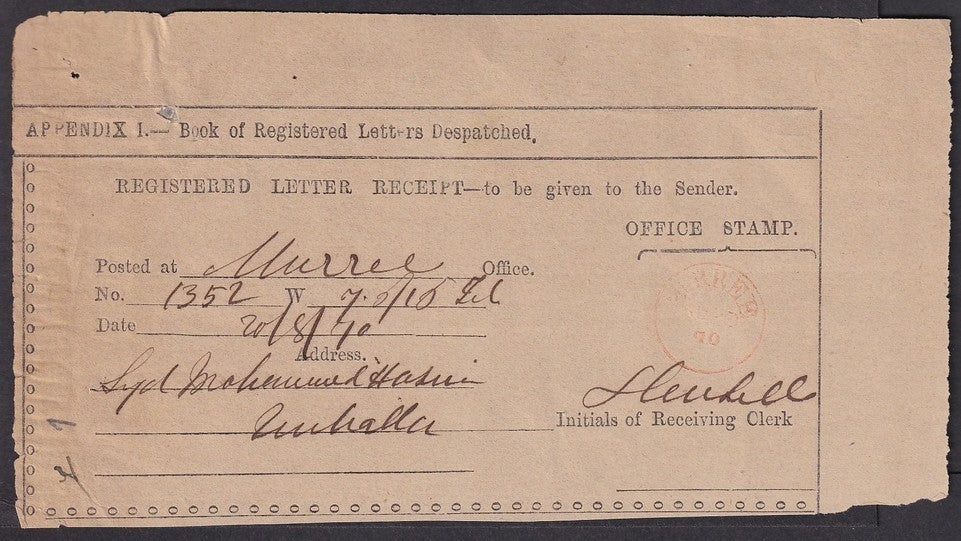 APPENDIX I.— Book of Registered Letters Despatched.
REGISTERED LETTER RECEIPT—to be given to the Sender.
OFFICE STAMP.
Posted at Murree Office.
No. 1352 W
Date 20/8/70
70
Address.
Syd Mohammed
Umballa
Initials of Receiving Clerk